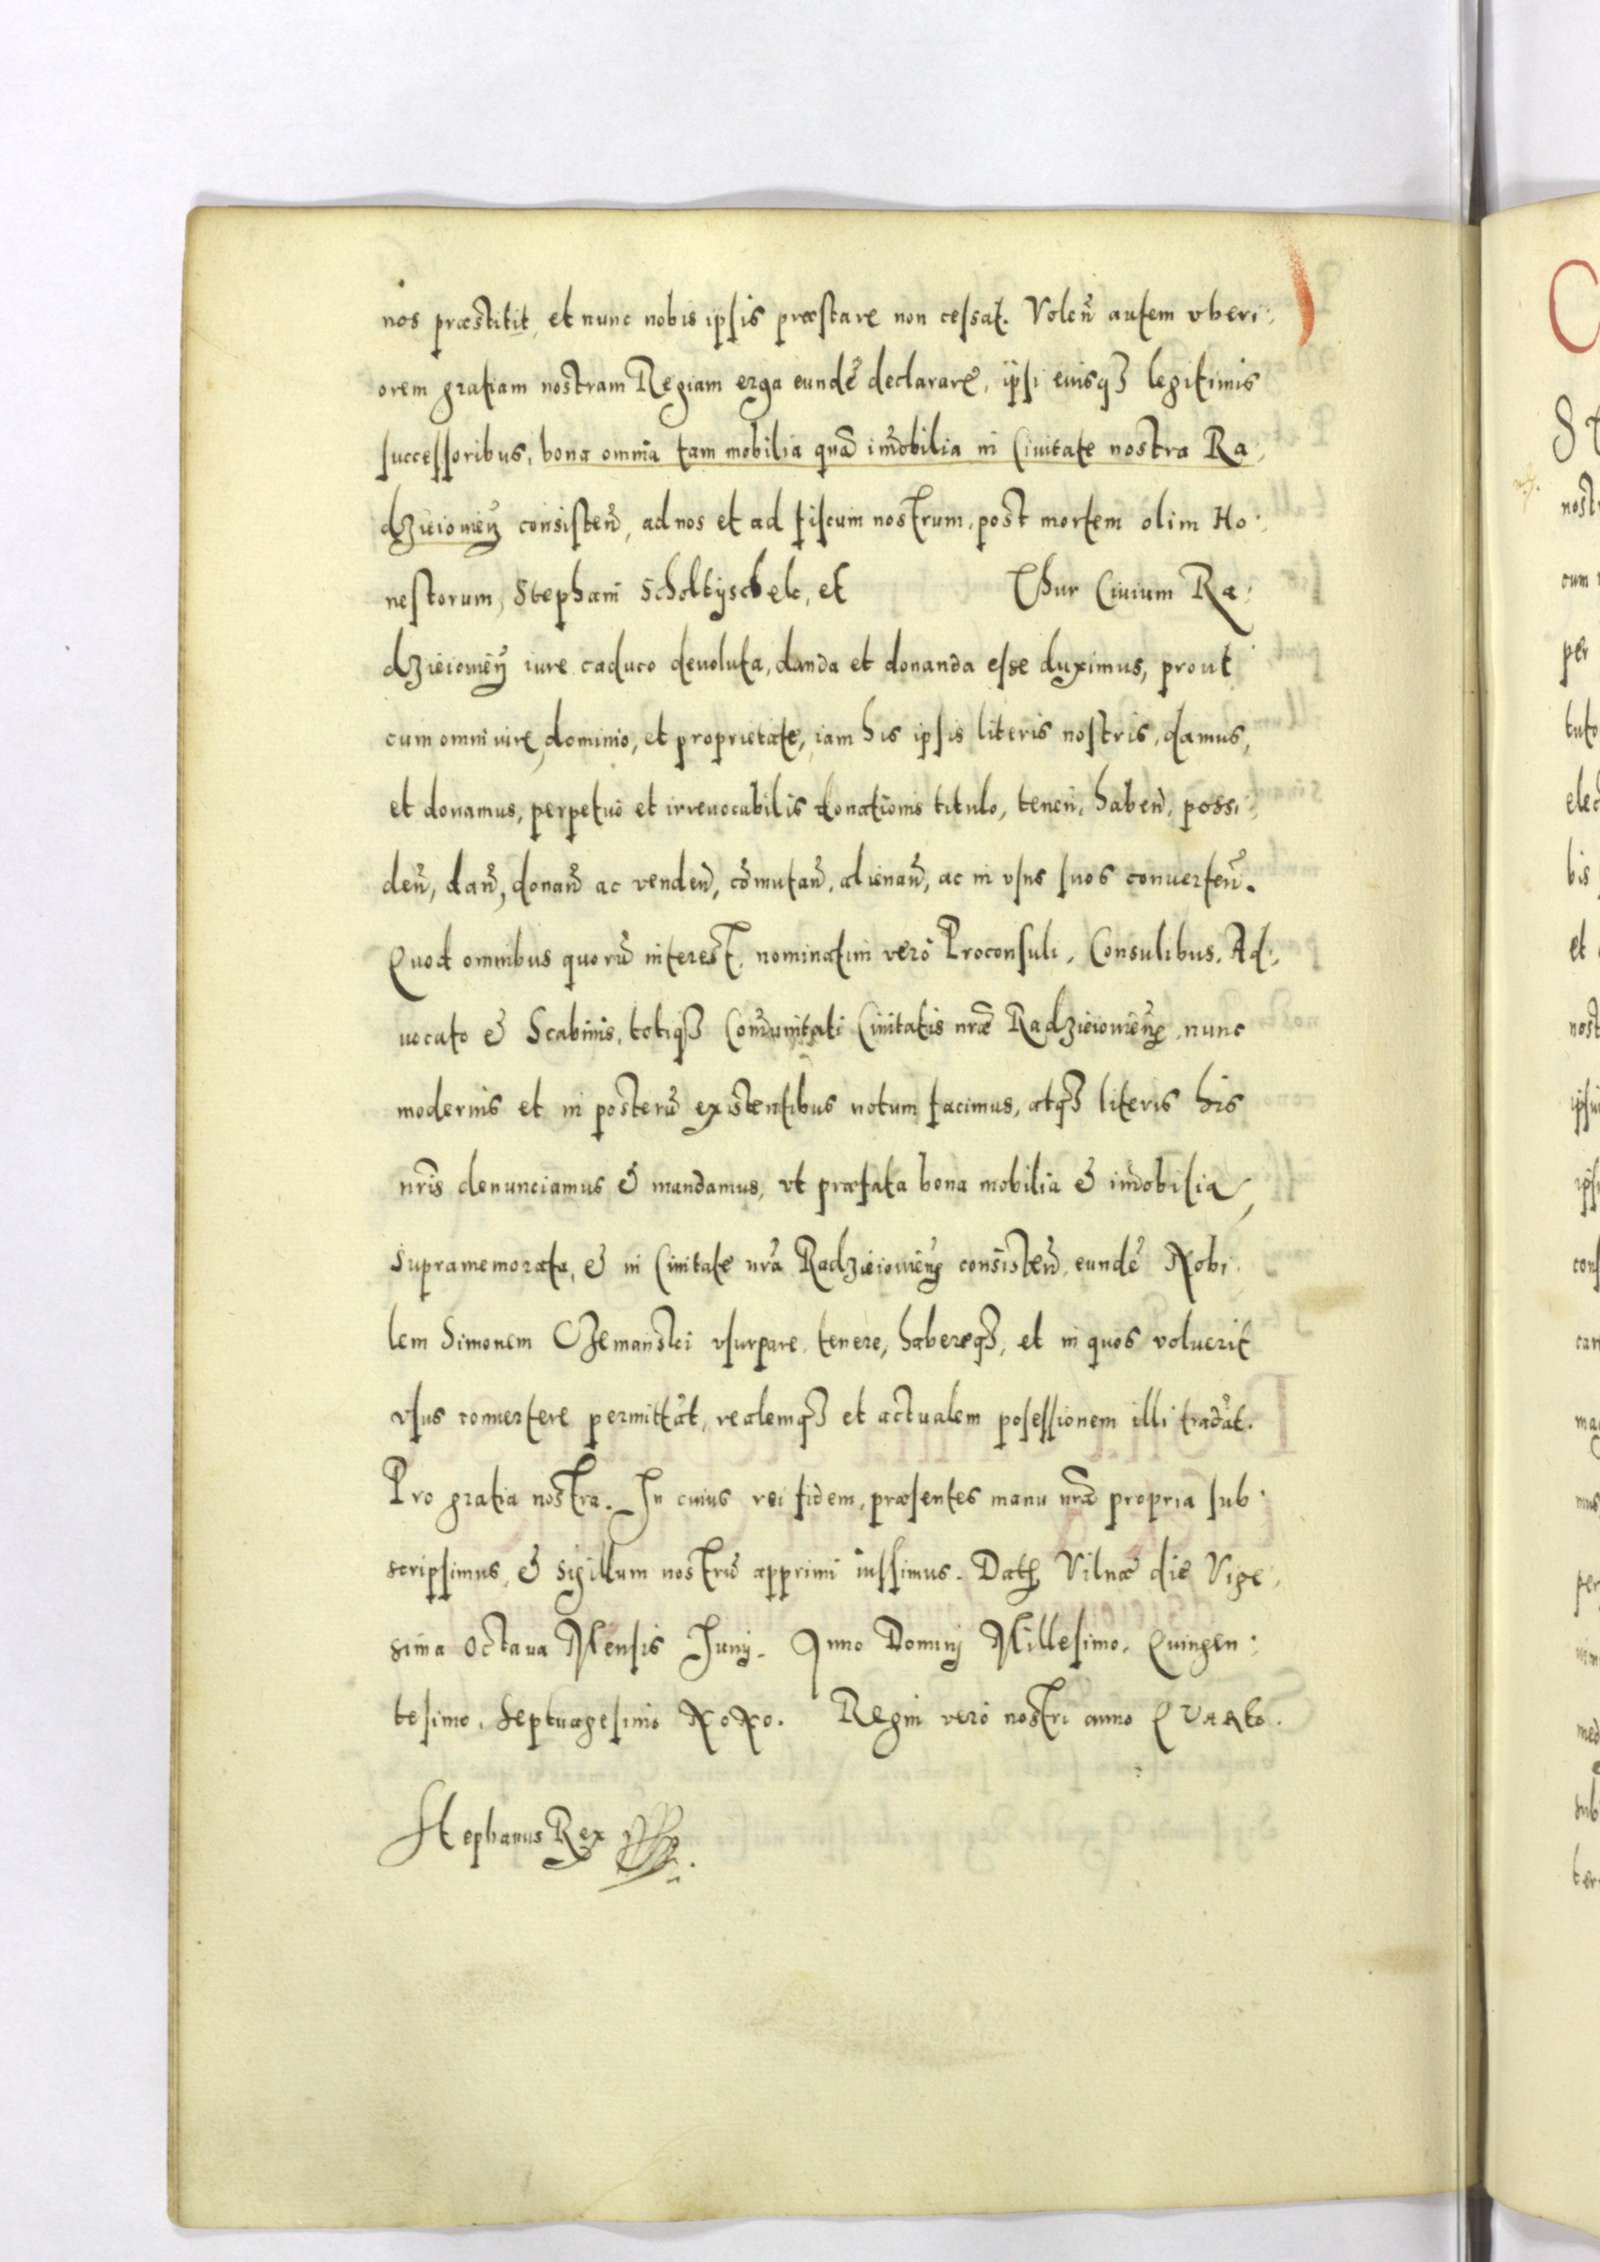 nos præstitit, et nunc nobis ipsis præstare non cessat. Voleñ autem vberi:
orem gratiam nostram Regiam erga eundē declarare, ipsi eiusqʒ legitimis
successoribus, bona omnia tam mobilia quā im̃obilia in Ciuitate nostra Ra:
dzieiouieñ consisteñ, ad nos et ad fiscum nostrum, post mortem olim Ho:
nestorum, Stephani Scholtyschek, et Thur Ciuium Ra:
dzieiouieñ iure caduco deuoluta, danda et donanda esse duximus, prout
cum omni iure, dominio, et proprietate, iam his ipsis literis nostris, damus,
et donamus, perpetuo et irreuocabilis donationis titulo, teneñ, habeñ, possi:
deñ, dañ, donañ ac vendeñ, cõmutañ, alienañ, ac in vsus suos conuerteñ.
Quod omnibus quorũ interest, nominatim vero Proconsuli, Consulibus, Ad:
uocato & Scabinis, totiqʒ Com̃unitati Ciuitatis nræ Radzieiouieñ, nunc
modernis et in posterũ existentibus notum facimus, atqʒ literis his
nr̃is denunciamus & mandamus, vt præfata bona mobilia & im̃obilia,
supramemorata, & in Ciuitate nrã Radzieiouieñ consisteñ, eundē Nobi:
lem Simonem Czemanski vsurpare, tenere, habereqʒ, et in quos voluerit
vsus conuertere permittãt, realemqʒ et actualem posessionem illi tradãt.
Pro gratia nostra. In cuius rei fidem, præsentes manu nrã propria sub:
scripsimus, & sigillum nostrũ apprimi iussimus. Dat Vilnæ die Vige:
sima Octaua Mensis Junij. Anno Dominj Millesimo. Quingen:
tesimo, Septuagesimo NoNo. Regni vero nostri anno QVARto.
Stephanus Rex